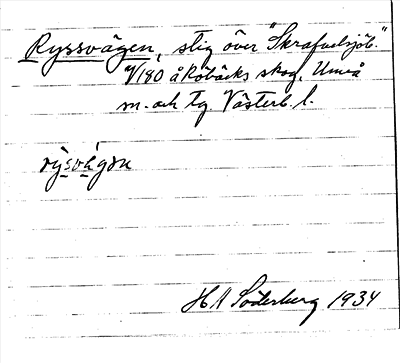 Ryssvägen, stig över "Skrafvelsjöb."
4/180 å Röbäcks skog, Umeå
m. och tg. Västerb. l.
rysvägɷn
H A Söderberg 1934